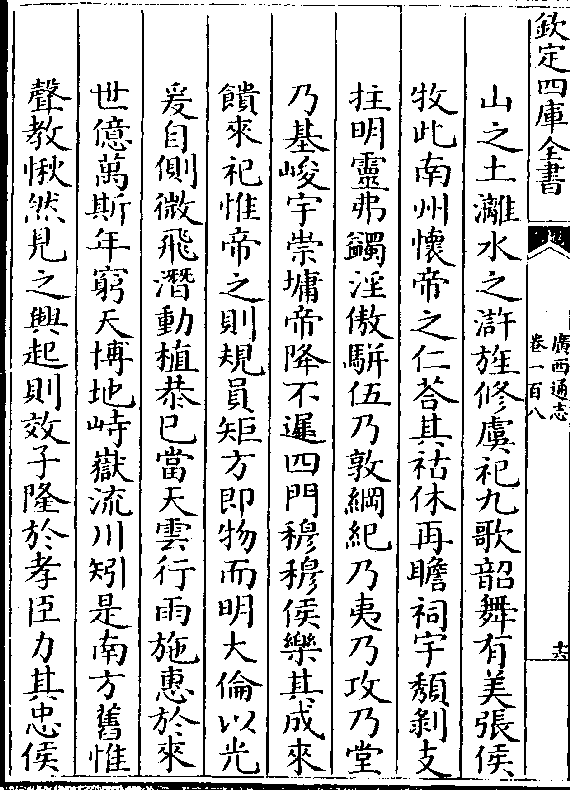 欽定四庫全書
廣西通志
卷一百八
十六
山之土灕水之滸旌修虞祀九歌韶舞有美張侯
牧此南州懷帝之仁荅其祜休再瞻祠宇頽剝支
拄明靈弗蠲淫傲駢伍乃敦綱紀乃夷乃攻乃堂
乃基峻宇崇墉帝降不遲四門穆穆侯樂其成來
饋來祀惟帝之則規員矩方即物而明大倫以光
爰自側微飛潛動植恭已當天雲行雨施惠於來
世億萬斯年窮天博地峙嶽流川矧是南方舊惟
聲教愀然見之興起則效子隆於孝臣力其忠侯